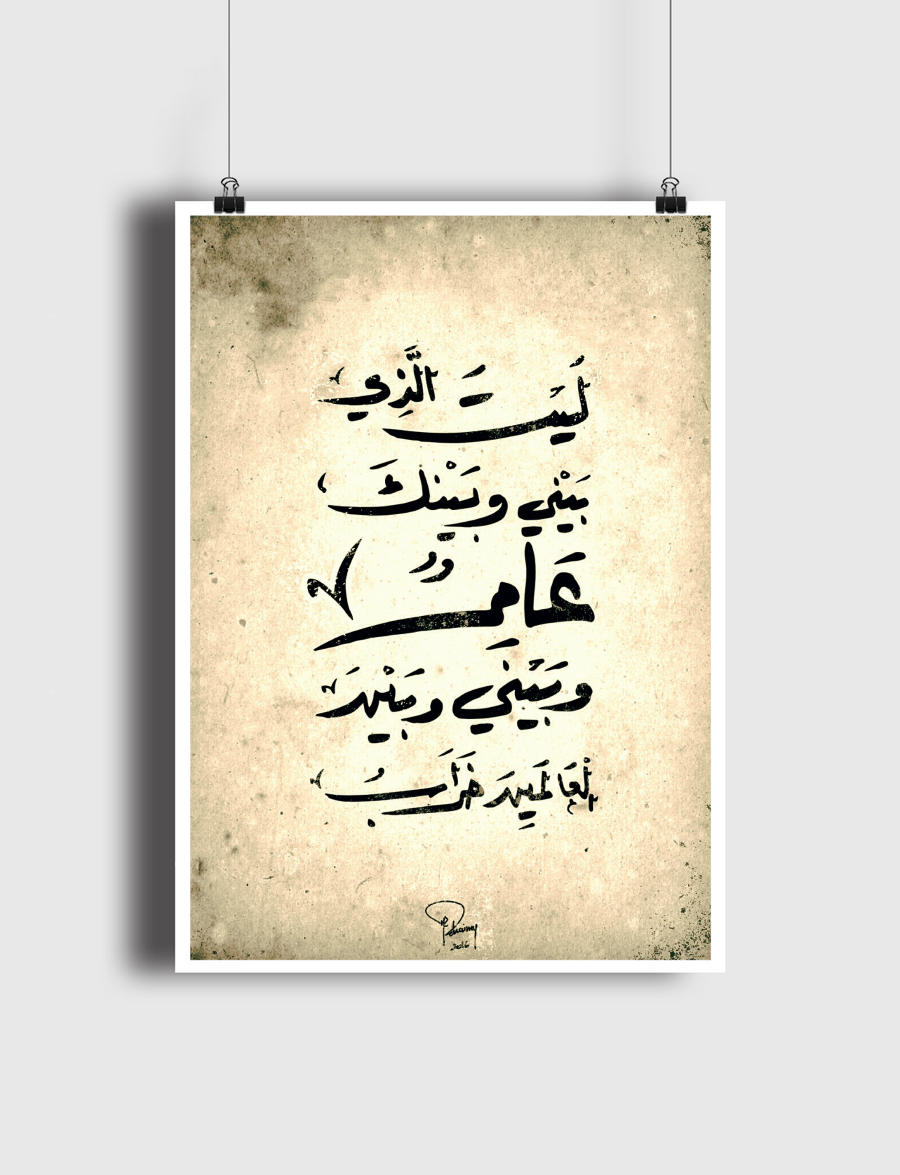 لَيْتَ الَّذِي
بَيْنِي وبَيْنَكَ
عَامِرٌ
وبَيْنِي وبَيْنَ
الْعَالَمِينَ خَرَابُ
2016